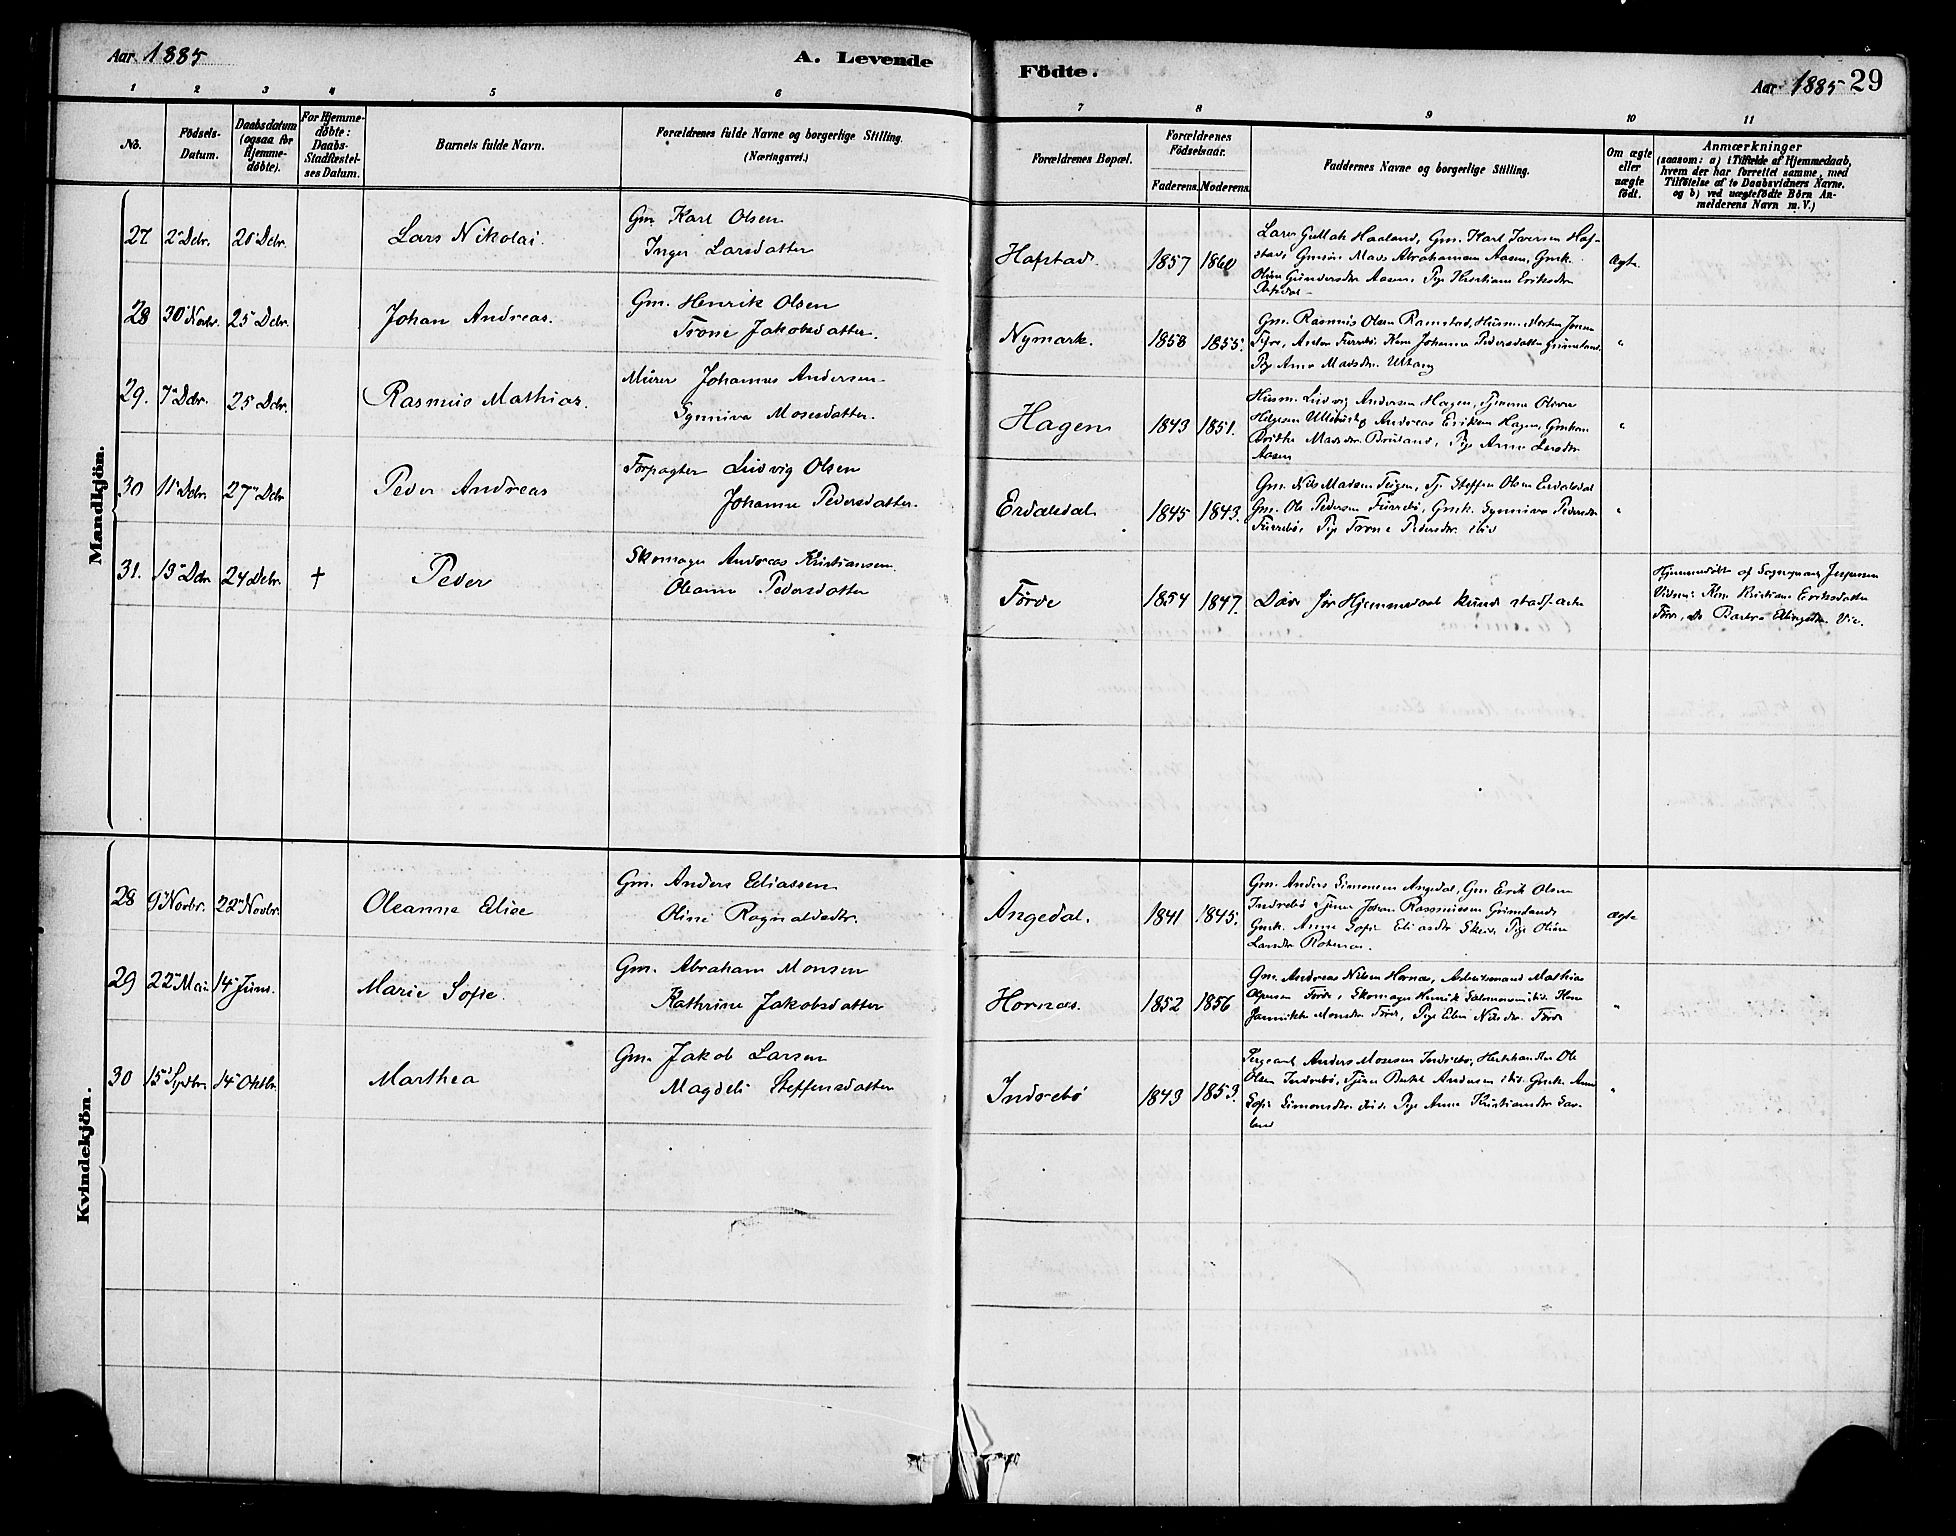 Aar 1885
A. Levende
Födte.
Aar 1885
29
1 2 3 4 5 6 7 8 9 10 11
No.
Födsels-
Datum.
Daabsdatum
(ogsaa for
Hjemme-
døbte).
For Hjemme-
døbte:
Daabs-
Stadfæstel-
ses Datum.
Barnets fulde Navn.
Forældrenes fulde Navne og borgerlige Stilling.
(Næringsvei.)
Forældrenes Bopæl.
Forældrenes
Födselsaar.
Faderens. Moderens.
Faddernes Navne og borgerlige Stilling.
Om ægte
eller
uægte
født.
Anmærkninger
(saasom: a) i Tilfælde af Hjemmedaab,
hvem der har forrettet samme, med
Tilføielse af to Daabsvidners Navne,
og b) ved uægtefødte Börn An-
melderens Navn m. V.)
Mandkjön.
27 2 Dcbr. 26 Dcbr. Lars Nikolai.
Gm. Karl Olsen
Inger Larsdatter
Hafstad. 1857 1860
Lars Gullak Haaland, Gm. Karl Iversen Haf-
stad, Mads Abrahamsen Aasen, Gmk.
Oline Gundersdtr Aasen, Pige Kristiane Eriksdtr
Ægte.
28 30 Novbr. 25 Dcbr. Johan Andreas.
Gm. Henrik Olsen
Trone Jakobsdatter.
Nymark. 1858 1855.
Gm. Rasmus Olsen Ramstad, Husm. Morten
Anders Furebø, Kone Johanne Pedersdatter
Pige Anne Madsdtr.
"
29. 7 Dcbr. 25 Dcbr. Rasmus Mathias.
Murer Johannes Andersen
Synniva Mosesdatter.
Hagen 1843 1851.
Husm. Ludvig Andersen Hagen, Tjener Oliver
Helgesen Andreas Eriksen Hagen,
Brithe Madsdtr Bruland, Pige Anne Larsdtr
Aasen
"
30 11 Dcbr. 27 Dcbr Peder Andreas
Forpagter Ludvig Olsen
Johanne Pedersdatter.
Erdalsdal 1845 1843.
Gm. Nils Madsen Teigen, Tj. Steffen Olsen Erdalsdal
Gm. Ole Pedersen Furrebö, Gmk. Synniva Pedersdtr
Furrebö, Pige Trone Pedersdtr. ibid
"
31. 13 Dcbr 24 Dcbr. † Peder
Skomager Andreas Kristiansen
Oleanne Pedersdatter
Förde 1854 1847.
Døde før Hjemmedaab kunde stadfæstes
Hjemmedøbt af Sogneprest Jespersen
Vidner: Kone Kristiane Eriksdatter
Förde, Do Barbro Vie.
Kvindekjön.
28 9 Novbr. 22 Novbr. Oleanne Elise
Gm. Anders Eliassen
Oline Ragnaldsdtr.
Angedal. 1841 1845.
Gm. Anders Simonsen Angedal, Gm Erik Olsen
Indrebö Tjener Johan Rasmussen Grimland
Gmk. Anne Sofie Eliasdtr Skei, Pige Oline
Larsdtr
Ægte
29 22 Mai 14 Juni. Marie Sofie.
Gm. Abraham Monsen
Kathrine Jakobsdatter
Hornæs. 1852 1856
Gm. Andreas Nilsen Hornæs, Arbeidsmand Mathias
Förde, Skomager Henrik Salomonsen ibid. Kone
Jannikke Monsdtr Förde, Pige Elen Nilsdtr. Förde
"
30 15 Septbr 14 Oktbr Marthea
Gm. Jakob Larsen
Magdeli Steffensdatter
Indrebö 1849 1853.
Sergeant Anders Mosesen Indrebö, Hestehandler Ole
Olsen Indrebö, Tjener Andersen ibid. Gmk. Anne
Sofie Simonsdtr ibid. Pige Anne Kristiansdtr Sav-
land
"